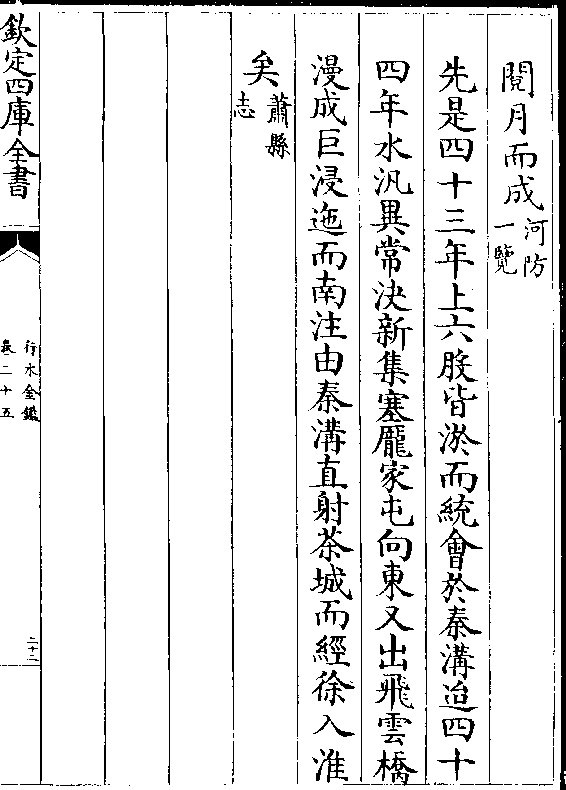 閱月而成河防一覽
先是四十三年上六股皆淤而統會於秦溝迨四十
四年水汎異常決新集塞龐家屯向東又出飛雲橋
漫成巨浸迤而南注由秦溝直射茶城而經徐入淮
矣蕭縣志
欽定四庫全書
行水金鑑
卷二十五
二十二